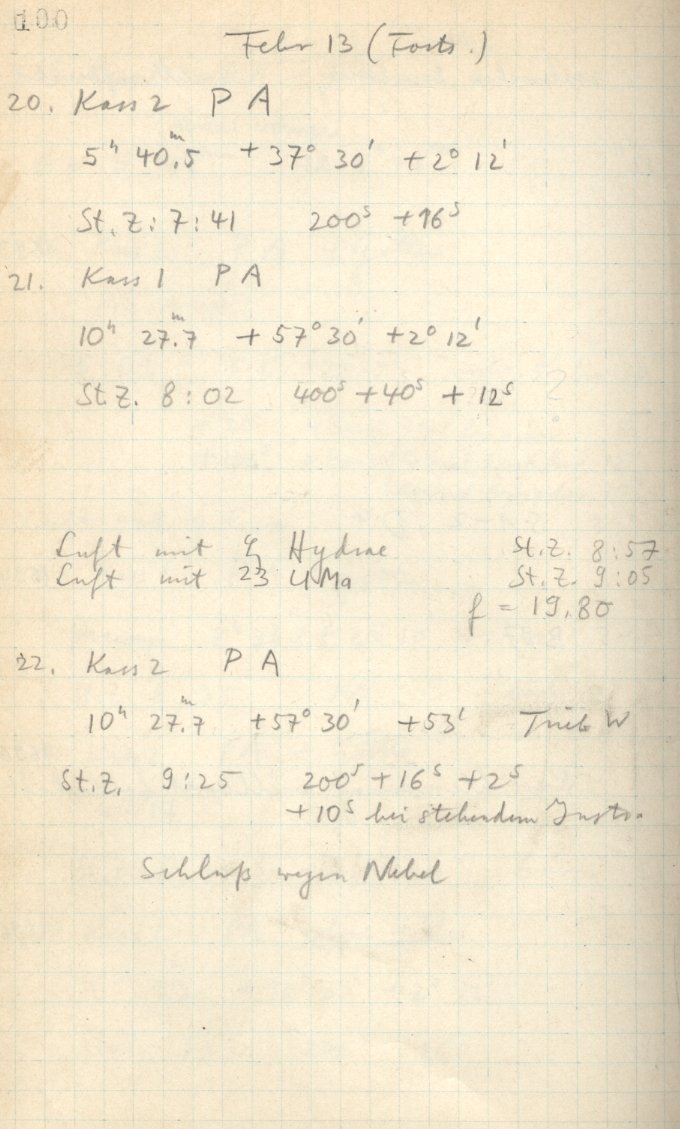 100
Febr 13 (Forts.)
20. Kass 2 P A
5ʰ 40ᵐ.5 +37° 30' +2° 12'
St. Z: 7:41 200ˢ +16ˢ
21. Kass 1 P A
10ʰ 27ᵐ.7 +57° 30' +2° 12'
St Z. 8:02 400ˢ +40ˢ + 12ˢ
Luft mit Hydrae St. Z. 8:57
Luft mit 23 UMa St. Z. 9:05
f = 19,80
22. Kass 2 P A
10ʰ 27ᵐ.7 +57° 30' +53' Trieb W
St. Z. 9:25 200ˢ +16ˢ +2ˢ
+10ˢ bei stehendem Instr.
Schluß wegen Nebel